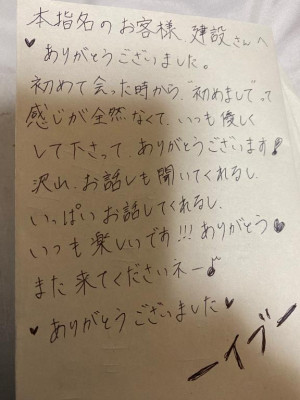 本指名のお客様 建設さんへ
♥ありがとうございました。
初めて会った時から"初めまして"って
感じが全然なくて、いつも優しく
して下さって、ありがとうございます!
沢山、お話しも聞いてくれるし、
いっぱいお話してくれるし、
いつも楽しいです!!! ありがとう♥
また来てくださいネー♪
♥ありがとうございました♥
ーイブー